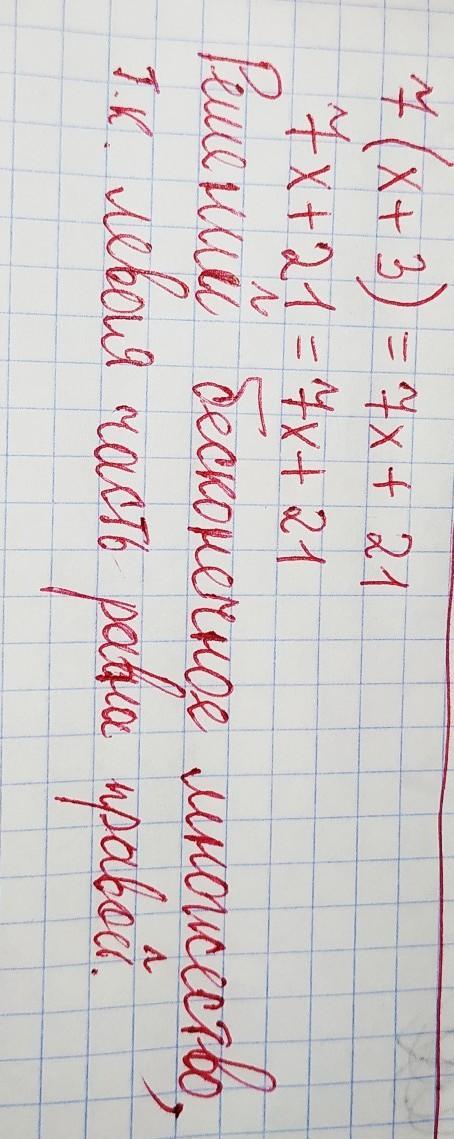 7(x+3)=7x+21
7x+21=7x+21
Решений бесконечное множество,
т.к. левая часть равна правой.